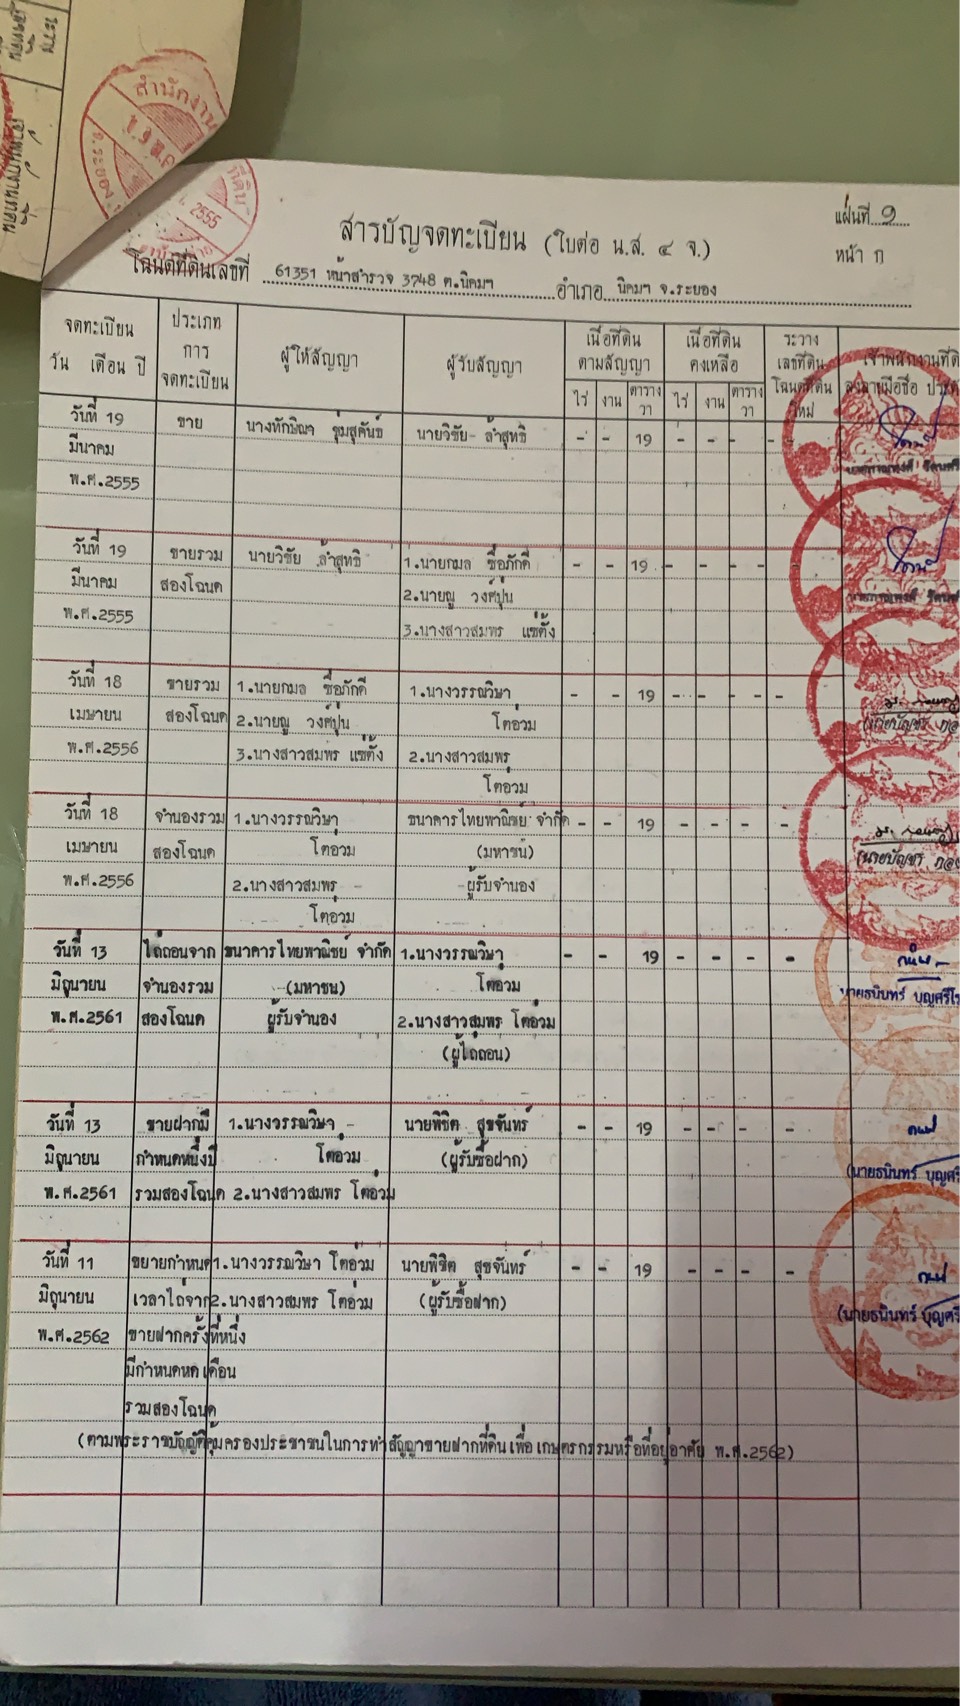 สำนักงาน
2555
แผ่นที่ 9
สารบัญจดทะเบียน (ใบต่อ น.ส. ๔ จ.)
หน้า ก
โฉนดที่ดินเลขที่ 61351 หน้าสำรวจ 3748 ต.นิคมฯ อำเภอ นิคมฯ จ.ระยอง
จดทะเบียน วัน เดือน ปี
ประเภทการจดทะเบียน
ผู้ให้สัญญา
ผู้รับสัญญา
เนื้อที่ดินตามสัญญา
เนื้อที่ดินคงเหลือ
ระวาง เลขที่ดิน โฉนดที่ดิน ใหม่
เจ้าพนักงานที่ดิน
ไร่ งาน ตารางวา ไร่ งาน ตารางวา
วันที่ 19 ขาย นายวิชัย ล้ำสุทธิ - - 19 - - - -
มีนาคม
พ.ศ.2555
วันที่ 19 ขายรวม นายวิชัย ล้ำสุทธิ 1.นายกมล ซื่อภักดี - - 19 - - - -
มีนาคม สองโฉนด 2.นายญู วงศ์ปุ่น
พ.ศ.2555 3.นางสาวสมพร แซ่ตั้ง
วันที่ 18 ขายรวม 1.นายกมล ซื่อภักดี 1.นางวรรณวิษา - - 19 - - - -
เมษายน สองโฉนด 2.นายญู วงศ์ปุ่น โตอ่วม
พ.ศ.2556 3.นางสาวสมพร แซ่ตั้ง 2.นางสาวสมพร
โตอ่วม
วันที่ 18 จำนองรวม 1.นางวรรณวิษา ธนาคารไทยพาณิชย์ จำกัด - - 19 - - - -
เมษายน สองโฉนด โตอ่วม (มหาชน)
พ.ศ.2556 2.นางสาวสมพร ผู้รับจำนอง
โตอ่วม
วันที่ 13 ไถ่ถอนจาก ธนาคารไทยพาณิชย์ จำกัด 1.นางวรรณวิษา - - 19 - - - -
มิถุนายน จำนองรวม (มหาชน) โตอ่วม นายธนินทร์ บุญศรีโร
พ.ศ.2561 สองโฉนด ผู้รับจำนอง 2.นางสาวสมพร โตอ่วม
(ผู้ไถ่ถอน)
วันที่ 13 ขายฝากมี 1.นางวรรณวิษา นายพิชิต สุขจันทร์ - - 19 - - - -
มิถุนายน กำหนดหนึ่งปี โตอ่วม (ผู้รับซื้อฝาก) (นายธนินทร์ บุญศรี
พ.ศ.2561 รวมสองโฉนด 2.นางสาวสมพร โตอ่วม
วันที่ 11 ขยายกำหนด 1.นางวรรณวิษา โตอ่วม นายพิชิต สุขจันทร์ - - 19 - - - -
มิถุนายน เวลาไถ่จาก 2.นางสาวสมพร โตอ่วม (ผู้รับซื้อฝาก) (นายธนินทร์ บุญศรี
พ.ศ.2562 ขายฝากครั้งที่หนึ่ง
มีกำหนดหกเดือน
รวมสองโฉนด
(ตามพระราชบัญญัติคุ้มครองประชาชนในการทำสัญญาขายฝากที่ดินเพื่อเกษตรกรรมหรือที่อยู่อาศัย พ.ศ.2562)